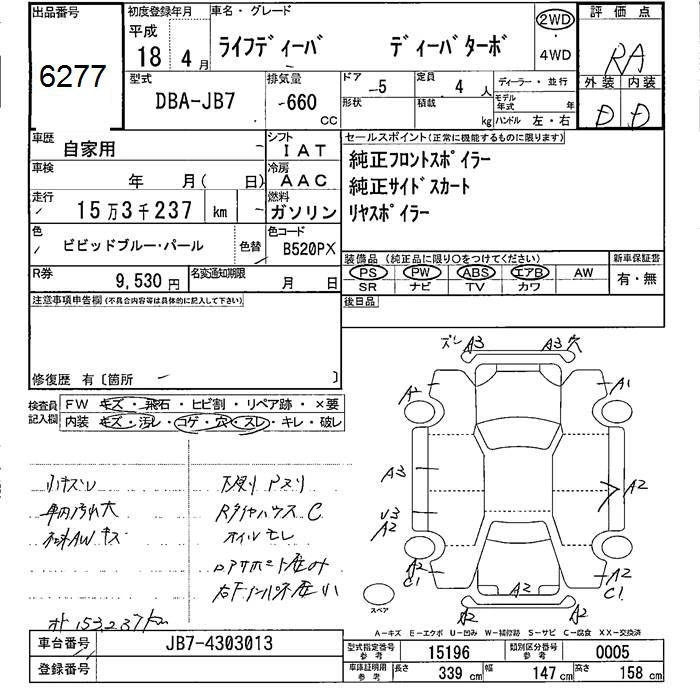 出品番号 初度登録年月 車名・グレード 2WD 評価点
6277 平成 18 4月 ライフディーバ ディーバターボ 4WD RA
型式 DBA-JB7 排気量 660 CC ドア 5 定員 4人 ディーラー・並行 外装 内装
形状 積載 kg モデル年式 年 ハンドル 左・右 D D
車歴 自家用 シフト IAT セールスポイント(正常に機能するものに限ります)
車検 年 月( 日) 冷房 AAC 純正フロントスポイラー
純正サイドスカート
走行 15万3千237 km 燃料 ガソリン リヤスポイラー
色 ビビッドブルー・パール 色替 色コード B520PX
装備品(純正品に限り○をつけてください) 新車保証書
R券 9,530円 名変通知期限 月 日 PS PW ABS エアB AW 有・無
SR ナビ TV カワ
注意事項申告欄(不具合内容等は具体的に記入して下さい) 後日品
修復歴 有〔箇所 〕
検査員記入欄 FW キズ・飛石・ヒビ割・リペア跡・×要
内装 キズ・汚レ・コゲ・穴・スレ・キレ・破レ
ズレ A3 A3 穴
A2 A1
A3 A2
U3
A2
A2 C1 A2 A2 C1
A2 A2
小キズ
車内汚れ大
社外AWキズ
下廻りPスリ
RタイヤハウスC
オイルモレ
オト153237km
スペア
A−キズ E−エクボ U−凹み W−補修跡 S−サビ C−腐食 XX−交換済
車台番号 JB7-4303013 型式指定番号 参考 15196 類別区分番号 参考 0005
登録番号 車庫証明用 参考 長さ 339cm 幅 147cm 高さ 158cm